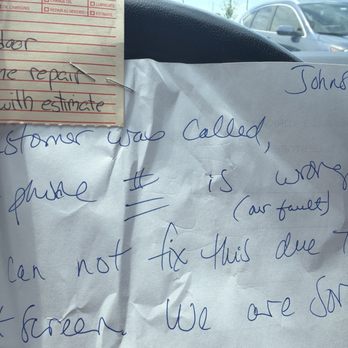 door
repair
with estimate
Johns
stomer was called,
phone # is wrong
(our fault)
can not fix this due t
screen. We are sor